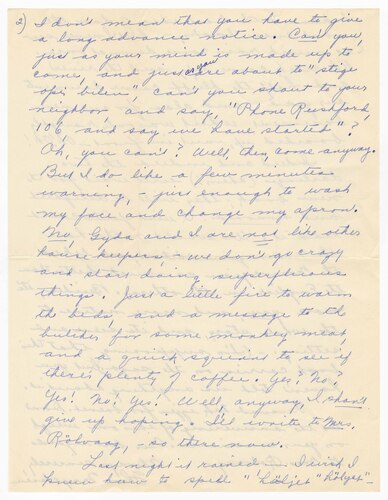 2) I don't mean that you have to give
a long advance notice. Can you,
just as your mind is made up to
come, and just as you are about to "stige
opi bilen", can't you shout to your
neighbor, and say, "Phone Rushford,
106, and say we have started"?
Oh, you can't? Well, then, come anyway.
But I do like a few minutes
warning, - just enough to wash
my face and change my apron.
No, Gyda and I are not like other
house keepers, - we don't go crazy
and start doing superfluous
things. Just a little fire to warm
the beds, and a message to the
butcher for some monkey meat,
and a quick squint to see if
there's plenty of coffee. Yes? No?
Yes! No! Yes! Well, anyway, I shan't
give up hoping. I'll write to Mrs.
Rölvaag, - so there now.
Last night it rained in. I wish I
knew how to spell "höljet" "höljet" -